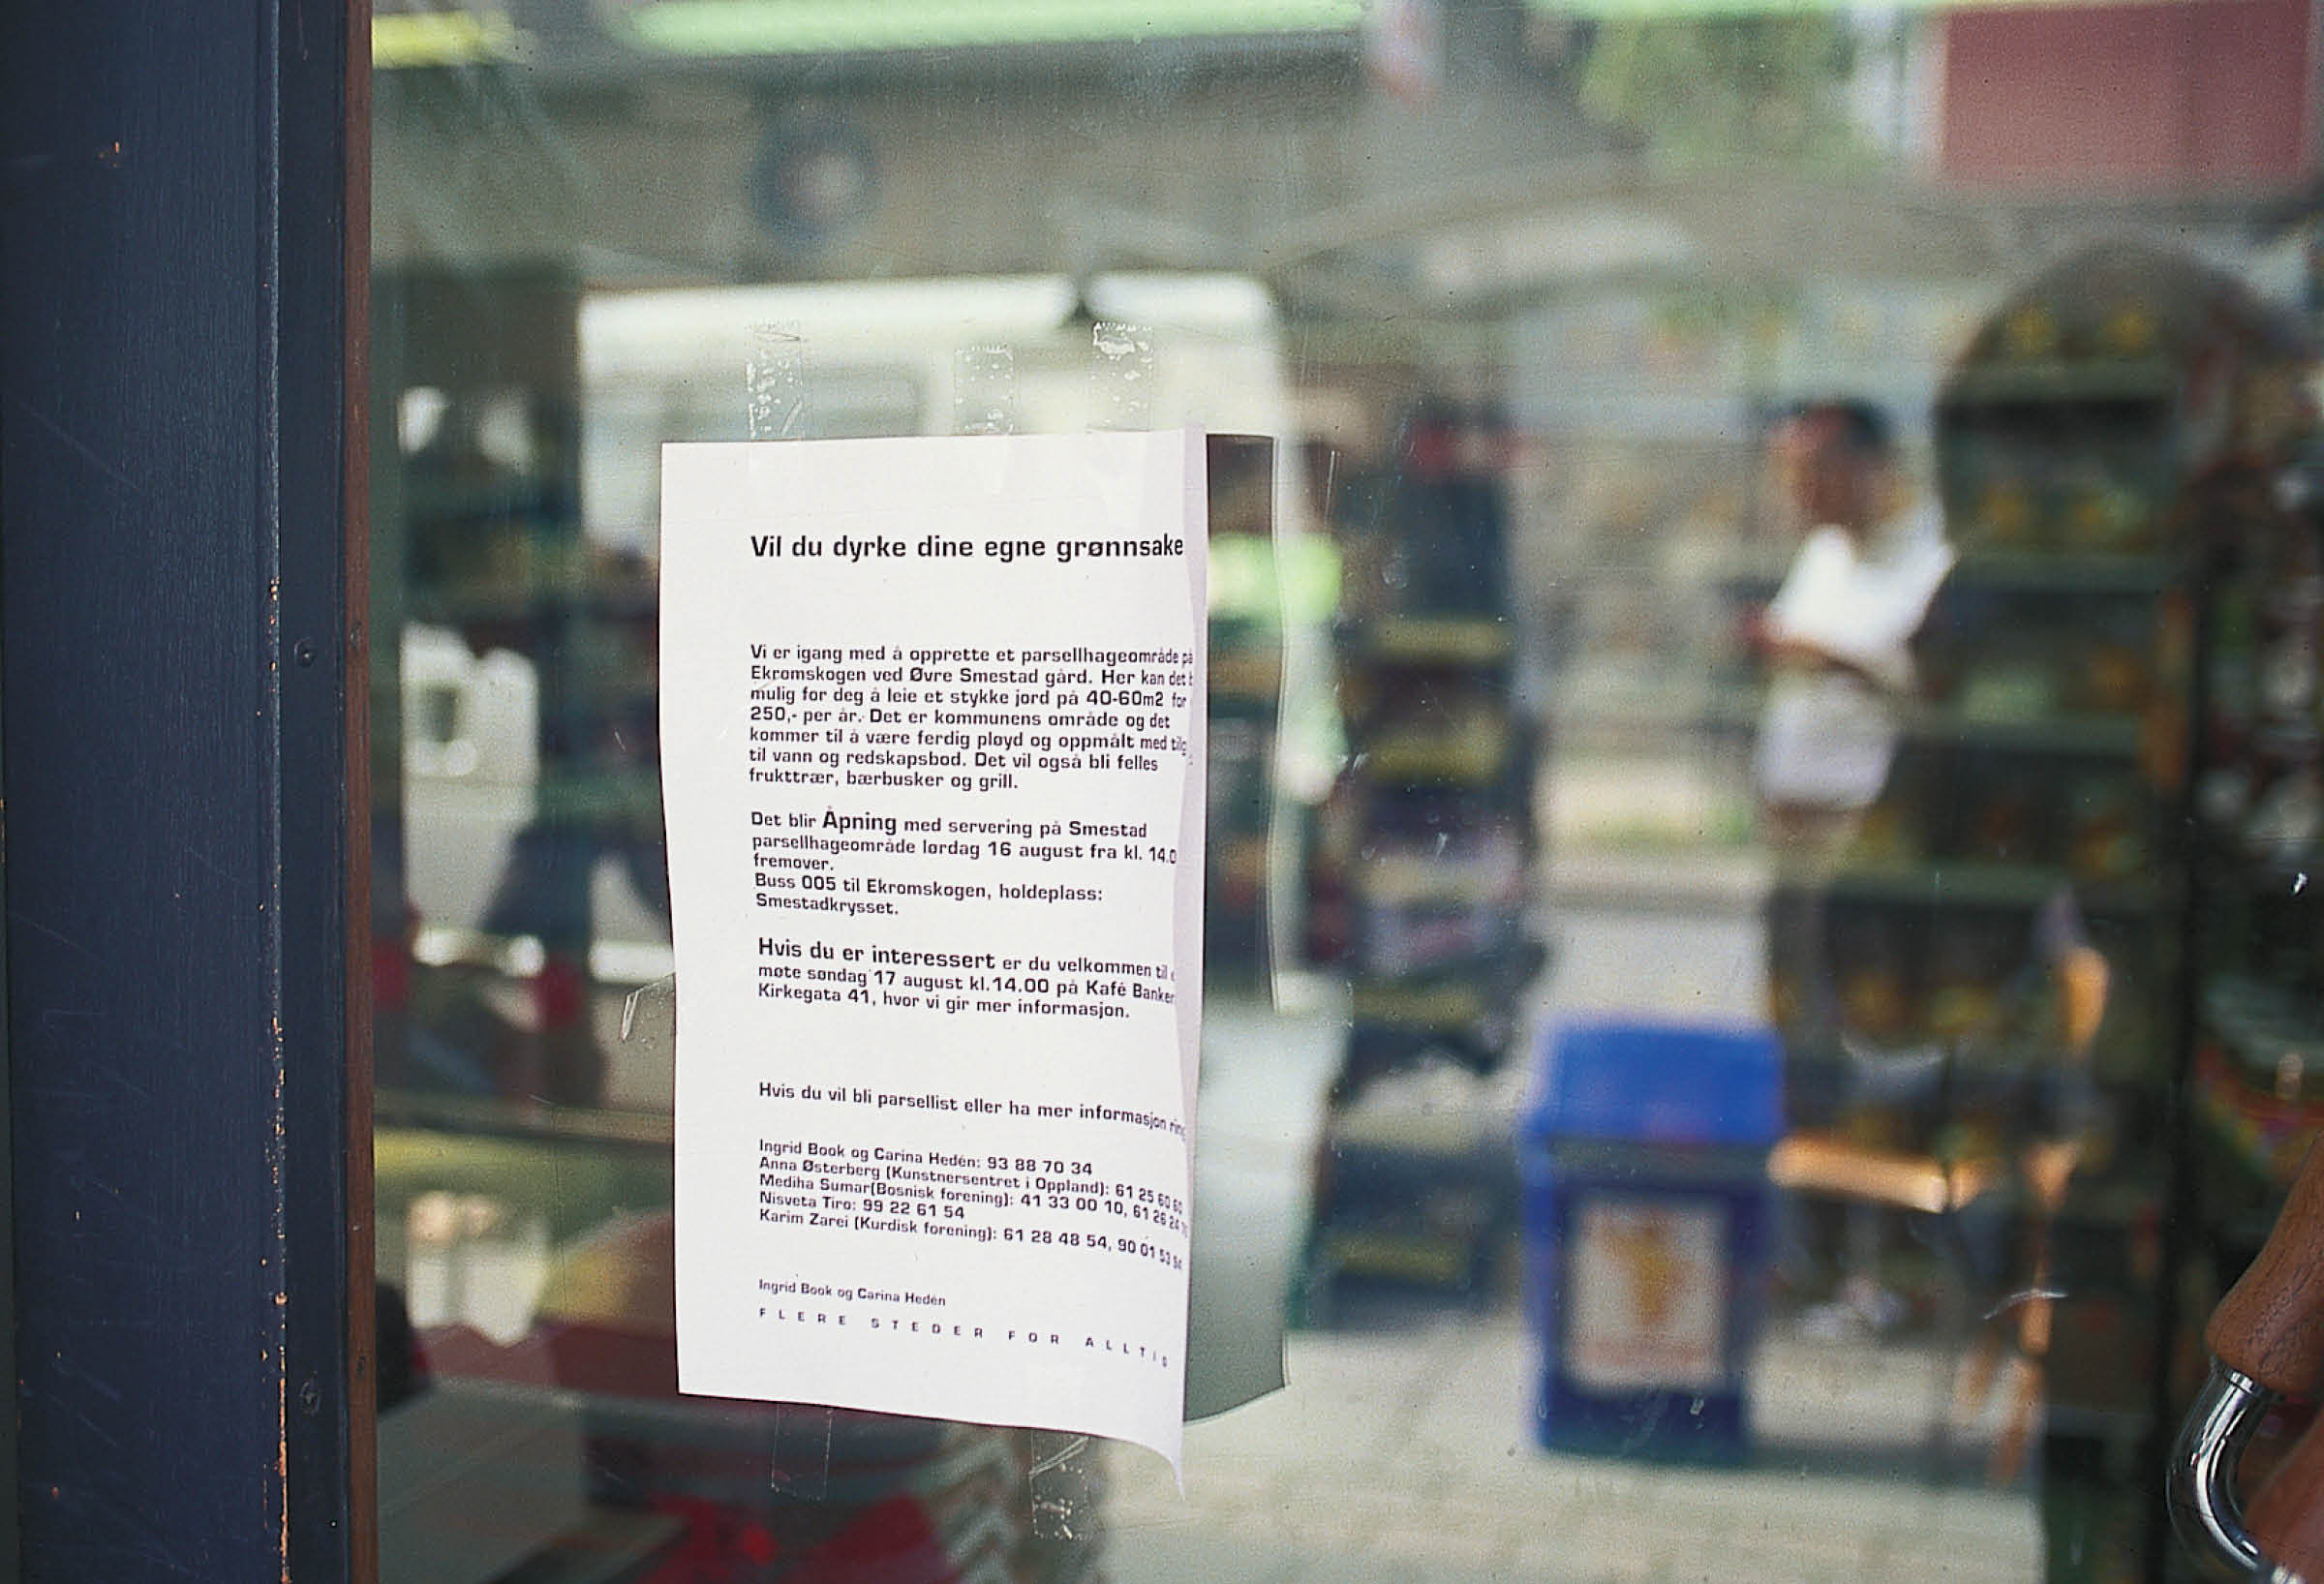 Vil du dyrke dine egne grønnsake
Vi er igang med å opprette et parsellhageområde på
Ekromskogen ved Øvre Smestad gård. Her kan det
mulig for deg å leie et stykke jord på 40-60m2 for
250,- per år. Det er kommunens område og det
kommer til å være ferdig pløyd og oppmålt med tilg
til vann og redskapsbod. Det vil også bli felles
frukttrær, bærbusker og grill.
Det blir Åpning med servering på Smestad
parsellhageområde lørdag 16 august fra kl. 14.0
fremover.
Buss 005 til Ekromskogen, holdeplass:
Smestadkrysset.
Hvis du er interessert er du velkommen til
møte søndag 17 august kl.14.00 på Kafé Banker
Kirkegata 41, hvor vi gir mer informasjon.
Hvis du vil bli parsellist eller ha mer informasjon ring
Ingrid Book og Carina Hedén: 93 88 70 34
Anna Østerberg (Kunstnersentret i Oppland): 61 25 60 60
Mediha Sumar(Bosnisk forening): 41 33 00 10, 61 26 24
Nisveta Tiro: 99 22 61 54
Karim Zarei (Kurdisk forening): 61 28 48 54, 90 01 53 94
Ingrid Book og Carina Hedén
FLERE STEDER FOR ALLTID